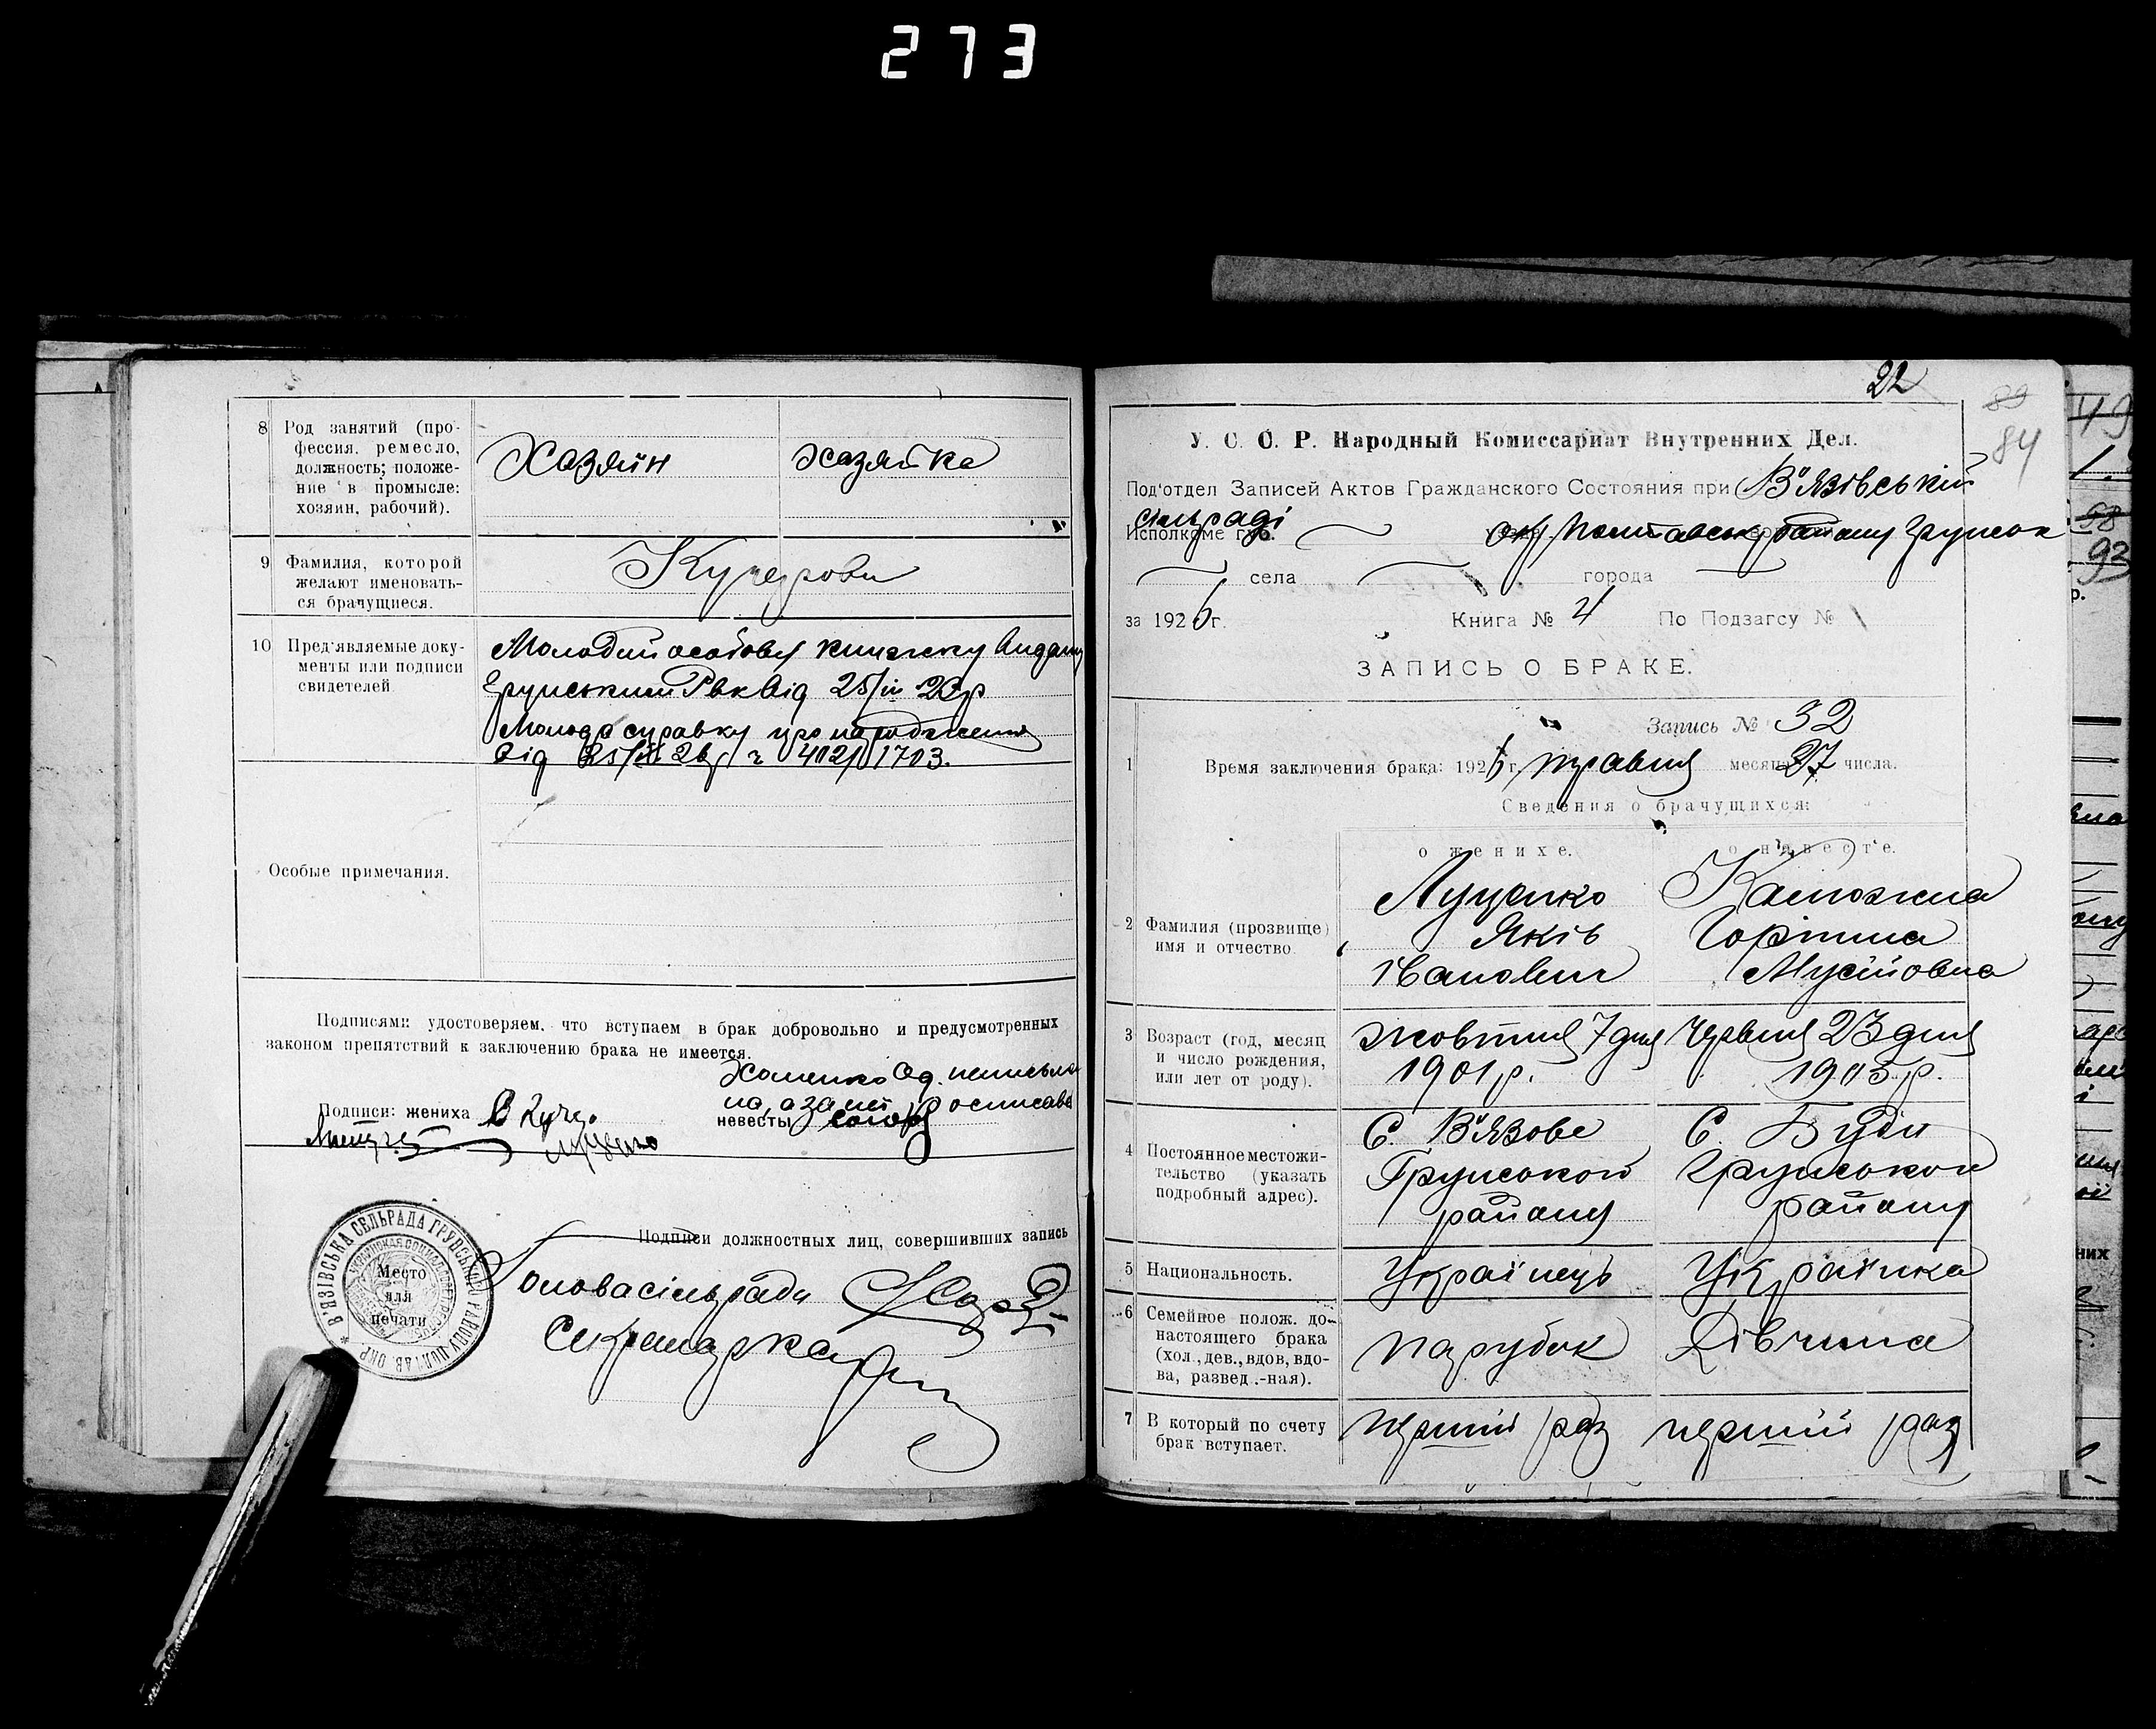 273
8 Род занятий (про-
фессия, ремесло,
должность; положе-
ние в промысле:
хозяин, рабочий).
Хазяїн хазяйка
9 Фамилия, которой
желают именовать-
ся брачущиеся.
Кучерови
10 Пред'являемые доку-
менты или подписи
свидетелей
Молодий особову книжку видану
Грунським Рвк від 25/III 23р
Молода справку про народження
від 25/ 26р ч 402/1703.
Особые примечания.
Подписями удостоверяем, что вступаем в брак добровольно и предусмотренных
законом препятствий к заключению брака не имеется.
Хоменко Од. неписьмена
а за неї росписався
Подписи: жениха В Куче.
невесты
Луценко
Подписи должностных лиц, совершивших запись
Голова сільради
Секретарка
В'ЯЗІВСЬКА СЕЛЬРАДА ГРУНСЬКОГО РАЙОНУ ПОЛТАВ. ОКР.
Место
для
печати
22
89
84
У. С. С. Р. Народный Комиссариат Внутренних Дел.
Под'отдел Записей Актов Гражданского Состояния при В'язівській
сільраді
Исполкоме губ. окр Полтавськ району Грунськ
села города
за 1926 г. Книга № 4 По Подзагсу №
ЗАПИСЬ О БРАКЕ.
Запись № 32
1 Время заключения брака: 1926 г. травня месяца 27 числа.
Сведения о брачущихся:
о женихе. о невесте.
2 Фамилия (прозвище)
имя и отчество
Луценко
Яків
Іванович
Катюжна
Горпина
Мусіївна
3 Возраст (год, месяц
и число рождения,
или лет от роду).
Жовтня 7 дня
1901 р.
Червня 23 дня
1905 р.
4 Постоянное местожи-
тельство (указать
подробный адрес).
С. В'язове
Грунського
району
С. Буди
Грунського
району
5 Национальность.
Українець Українка
6 Семейное полож. до
настоящего брака
(хол., дев., вдов, вдо-
ва, развед.-ная).
парубок Дівчина
7 В который по счету
брак вступает.
перший раз перший раз